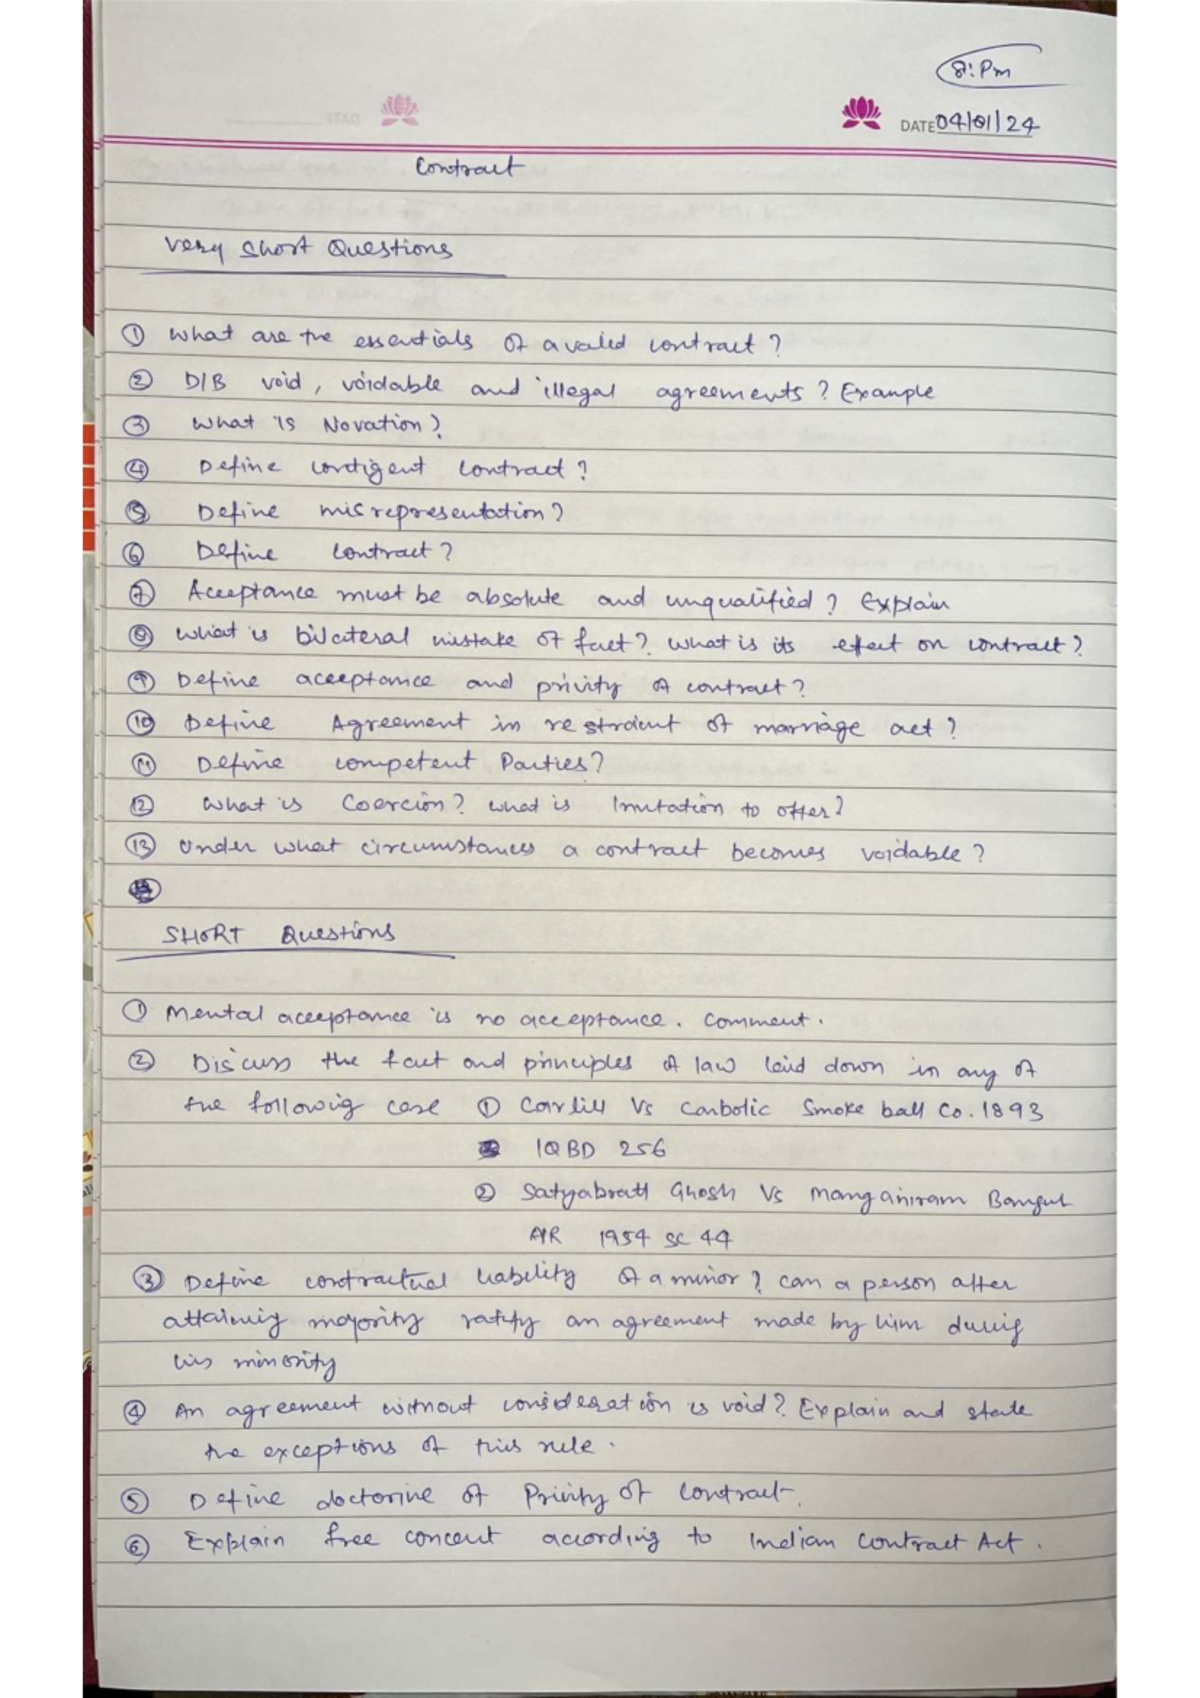 8:Pm
DATE 04/01/24
Contract
Very Short Questions
① What are the essentials of a valid contract?
② D/B void, voidable and illegal agreements? Example
③ What is Novation?
④ Define contigent contract?
⑤ Define misrepresentation?
⑥ Define contract?
⑦ Acceptance must be absolute and unqualified? Explain
⑧ What is bilateral mistake of fact? What is its effect on contract?
⑨ Define acceptance and privity of contract?
⑩ Define Agreement in restraint of marriage act?
⑪ Define competent Parties?
⑫ What is Coercion? What is Invitation to offer?
⑬ Under what circumstances a contract becomes voidable?
SHORT Questions
① Mental acceptance is no acceptance. Comment.
② Discuss the fact and principles of law laid down in any of
the following case ① Carlill Vs Carbolic Smoke ball Co. 1893
1QBD 256
② Satyabratt Ghosh Vs Manganiram Bangul
AIR 1954 SC 44
③ Define contractual liability of a minor? Can a person after
attaining majority ratify an agreement made by him during
his minority
④ An agreement without consideration is void? Explain and state
the exceptions of this rule.
⑤ Define doctorine of Privity of Contract.
⑥ Explain free concent according to Indian Contract Act.